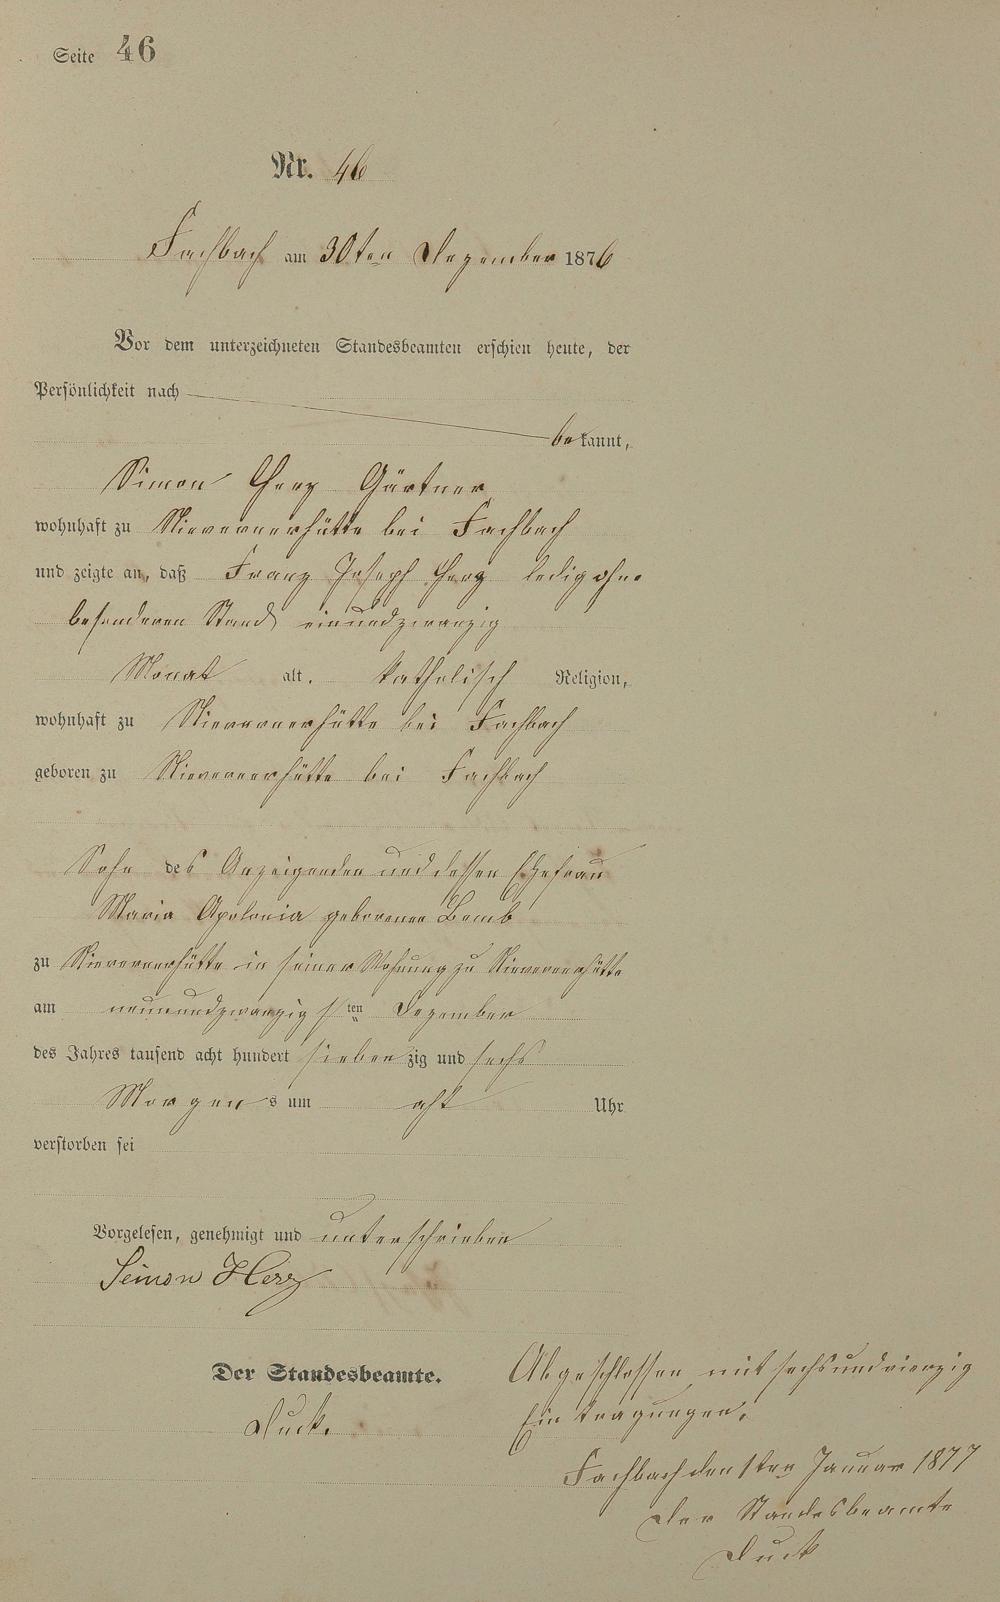 Seite 46
Nr. 46
Fachbach am 30ten Dezember 1876
Vor dem unterzeichneten Standesbeamten erschien heute, der
Persönlichkeit nach
bekannt,
Simon Herz Gärtner
wohnhaft zu Nievernerhütte bei Fachbach
und zeigte an, daß Franz Joseph Herz ledig ohne
besonderen Stand einundzwanzig
Monat alt, katholisch Religion,
wohnhaft zu Nievernerhütte bei Fachbach
geboren zu Nievernerhütte bei Fachbach
Sohn des Anzeigenden und dessen Ehefrau
Maria Apolonia geborenen Bemb
zu Nievernerhütte in seiner Wohnung zu Nievernerhütte
am neunundzwanzigsten Dezember
des Jahres tausend acht hundert siebenzig und sechs
Morgens um acht Uhr
verstorben sei
Vorgelesen, genehmigt und unterschrieben
Simon Herz
Der Standesbeamte.
Duck.
Abgeschlossen mit sechsundvierzig
Eintragungen.
Fachbach den 1ten Januar 1877
Der Standesbeamte
Duck